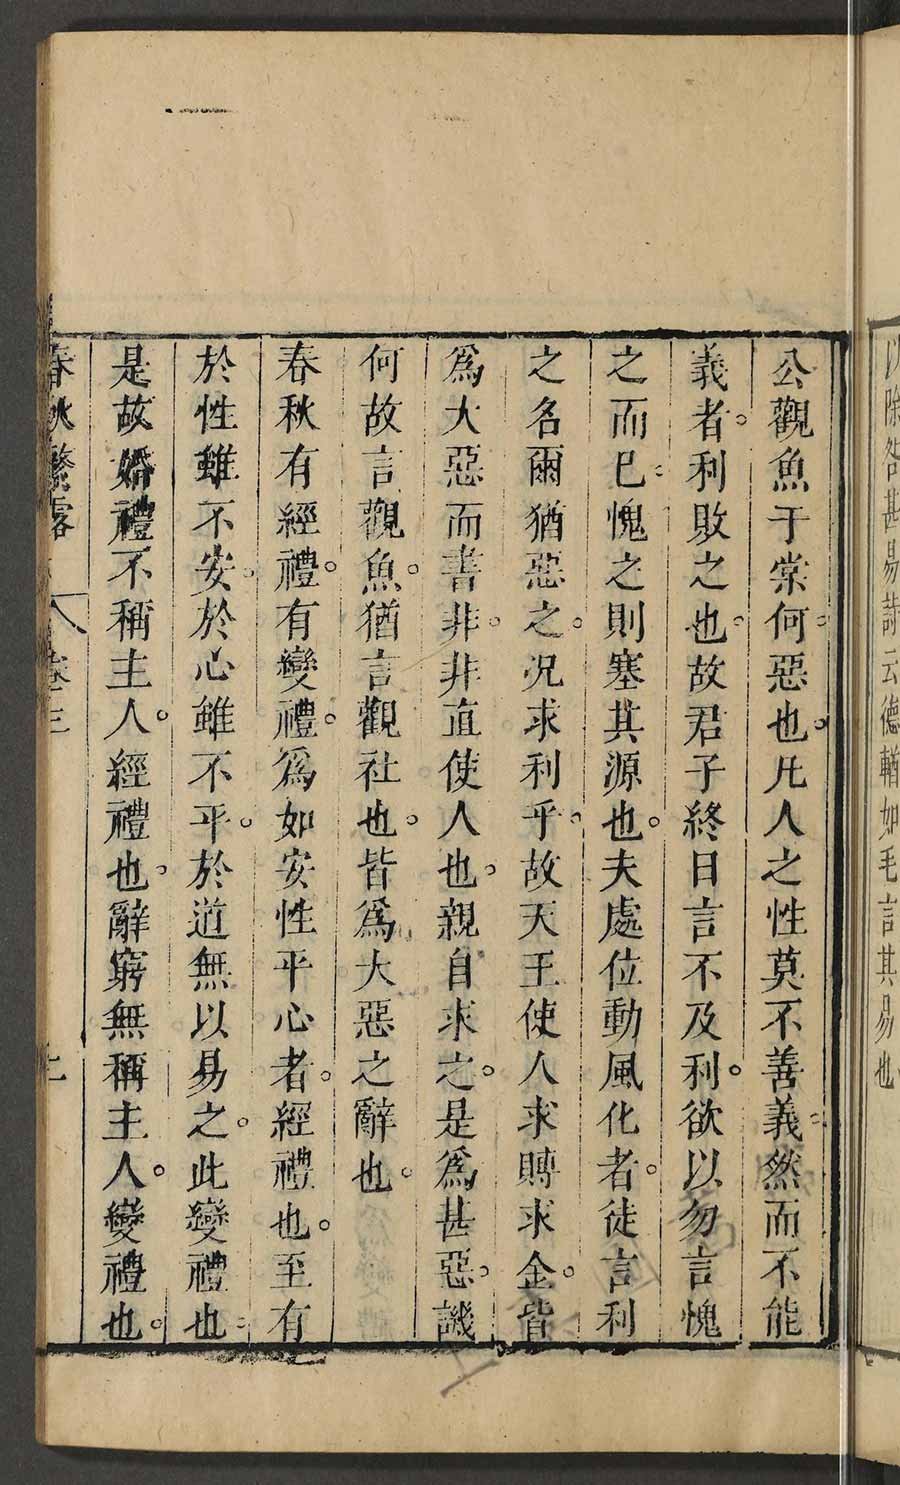 以除咎甚易詩云德輶如毛言其易也
公觀魚于棠何惡也凡人之性莫不善義然而不能
義者利敗之也故君子終日言不及利欲以勿言愧
之而已愧之則塞其源也夫處位動風化者徒言利
之名爾猶惡之況求利乎故天王使人求賻求金皆
爲大惡而書非非直使人也親自求之是爲甚惡譏
何故言觀魚猶言觀社也皆爲大惡之辭也
春秋有經禮有變禮爲如安性平心者經禮也至有
於性雖不安於心雖不平於道無以易之此變禮也
是故婚禮不稱主人經禮也辭窮無稱主人變禮也
春秋繁露 卷三